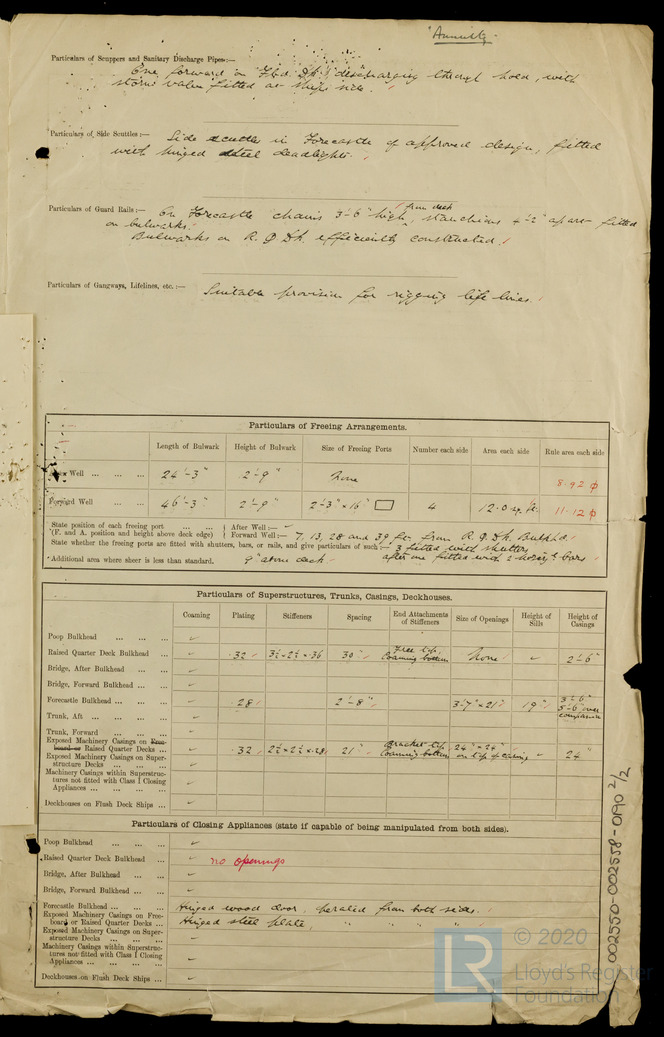 "Annuity"
Particulars of Scuppers and Sanitary Discharge Pipes:—
One forward in Fwd. Dk. discharging through hold, with
storm valve fitted at ships side.
Particulars of Side Scuttles:— Side scuttles in Forecastle of approved design, fitted
with hinged steel deadlights.
Particulars of Guard Rails:— On Forecastle chains 3'-6" high from deck, stanchions 4'-2" apart fitted
on bulwarks.
Bulwarks on R.Q.Dk. efficiently constructed.
Particulars of Gangways, Lifelines, etc.:— Suitable provision for rigging life lines.
Particulars of Freeing Arrangements.
Length of Bulwark Height of Bulwark Size of Freeing Ports Number each side Area each side Rule area each side
Well ... ... ... 24'-3" 2'-9" None 8.92
Forward Well ... ... 46'-3" 2'-9" 2'-3" × 16" 4 12.0 sq. ft. 11.12
State position of each freeing port ... ... After Well:—
(F. and A. position and height above deck edge) Forward Well:— 7, 13, 28 and 39 ft. from R.Q.Dk. Bulkhd.
State whether the freeing ports are fitted with shutters, bars, or rails, and give particulars of such:— 3 fitted with shutters
Additional area where sheer is less than standard. 9" above deck. after one fitted with 2 horizl. bars
Particulars of Superstructures, Trunks, Casings, Deckhouses.
Coaming Plating Stiffeners Spacing End Attachments of Stiffeners Size of Openings Height of Sills Height of Casings
Poop Bulkhead ... ... ...
Raised Quarter Deck Bulkhead ... .32 3½ × 2½ × .36 30" Free top, Coaming bottom None 2'-6"
Bridge, After Bulkhead ... ...
Bridge, Forward Bulkhead ... ...
Forecastle Bulkhead ... ... ... .28 2'-8" 3'-7" × 21" 19" 3'-6" 5'-6" over companion
Trunk, Aft ... ... ... ...
Trunk, Forward ... ... ...
Exposed Machinery Casings on Free-
board or Raised Quarter Decks ... .32 2½ × 2½ × .28 21" Bracket top Coaming bottom 24" × 24" on top of casing 24"
Exposed Machinery Casings on Super-
structure Decks ... ... ...
Machinery Casings within Superstruc-
tures not fitted with Class I Closing
Appliances ... ... ... ...
Deckhouses on Flush Deck Ships ...
Particulars of Closing Appliances (state if capable of being manipulated from both sides).
Poop Bulkhead ... ... ...
Raised Quarter Deck Bulkhead ... no openings
Bridge, After Bulkhead ... ...
Bridge, Forward Bulkhead ... ...
Forecastle Bulkhead ... ... ... Hinged wood door, operated from both sides.
Exposed Machinery Casings on Free-
board or Raised Quarter Decks ... Hinged steel plate, " " " "
Exposed Machinery Casings on Super-
structure Decks ... ... ...
Machinery Casings within Superstruc-
tures not fitted with Class I Closing
Appliances ... ... ... ...
Deckhouses on Flush Deck Ships ...
002550-002558-0190 2/2
LR
© 2020
Lloyd's Register
Foundation